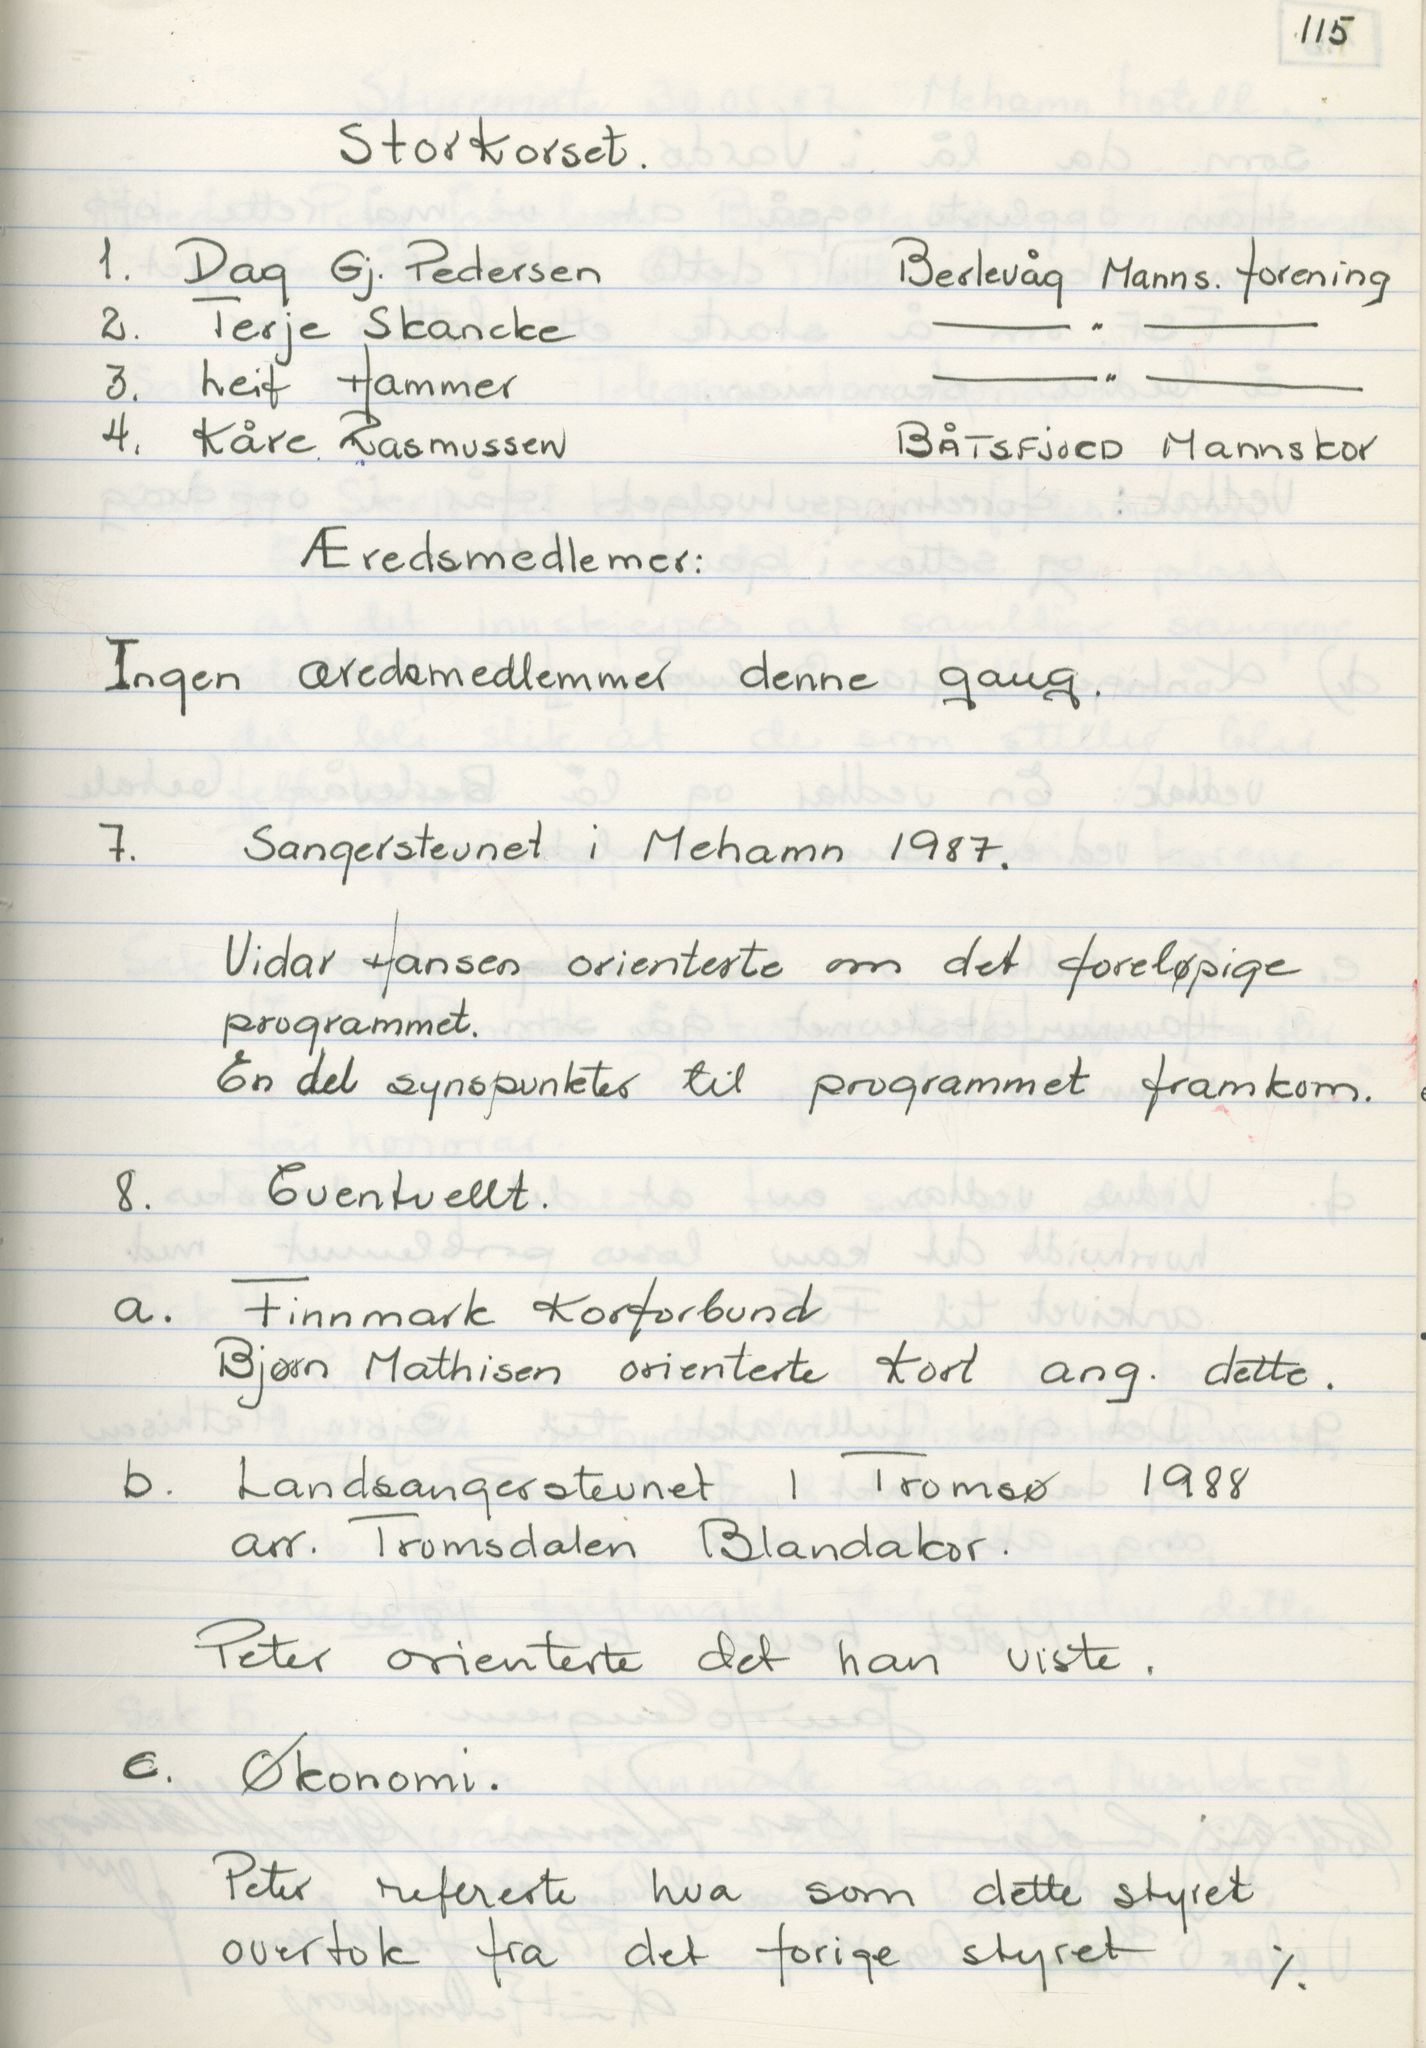 115
Storkorset.
1. Dag Gj. Pedersen Berlevåg Manns. forening
2. Terje Skancke — " —
3. Leif Hammer — " —
4. Kåre Rasmussen BÅTSFJORD Mannskor
Æredsmedlemer:
Ingen æredsmedlemmer denne gang.
7. Sangerstevnet i Mehamn 1987.
Vidar Hansen orienterte om det foreløpige
programmet.
En del synspunkter til programmet framkom.
8. Eventuellt.
a. Finnmark Korforbund
Bjørn Mathisen orienterte kort ang. dette.
b. Landsangerstevnet I Tromsø 1988
arr. Tromsdalen Blandakor.
Peter orienterte det han viste.
c. Økonomi.
Peter refererte hva som dette styret
overtok fra det forige styret ./.